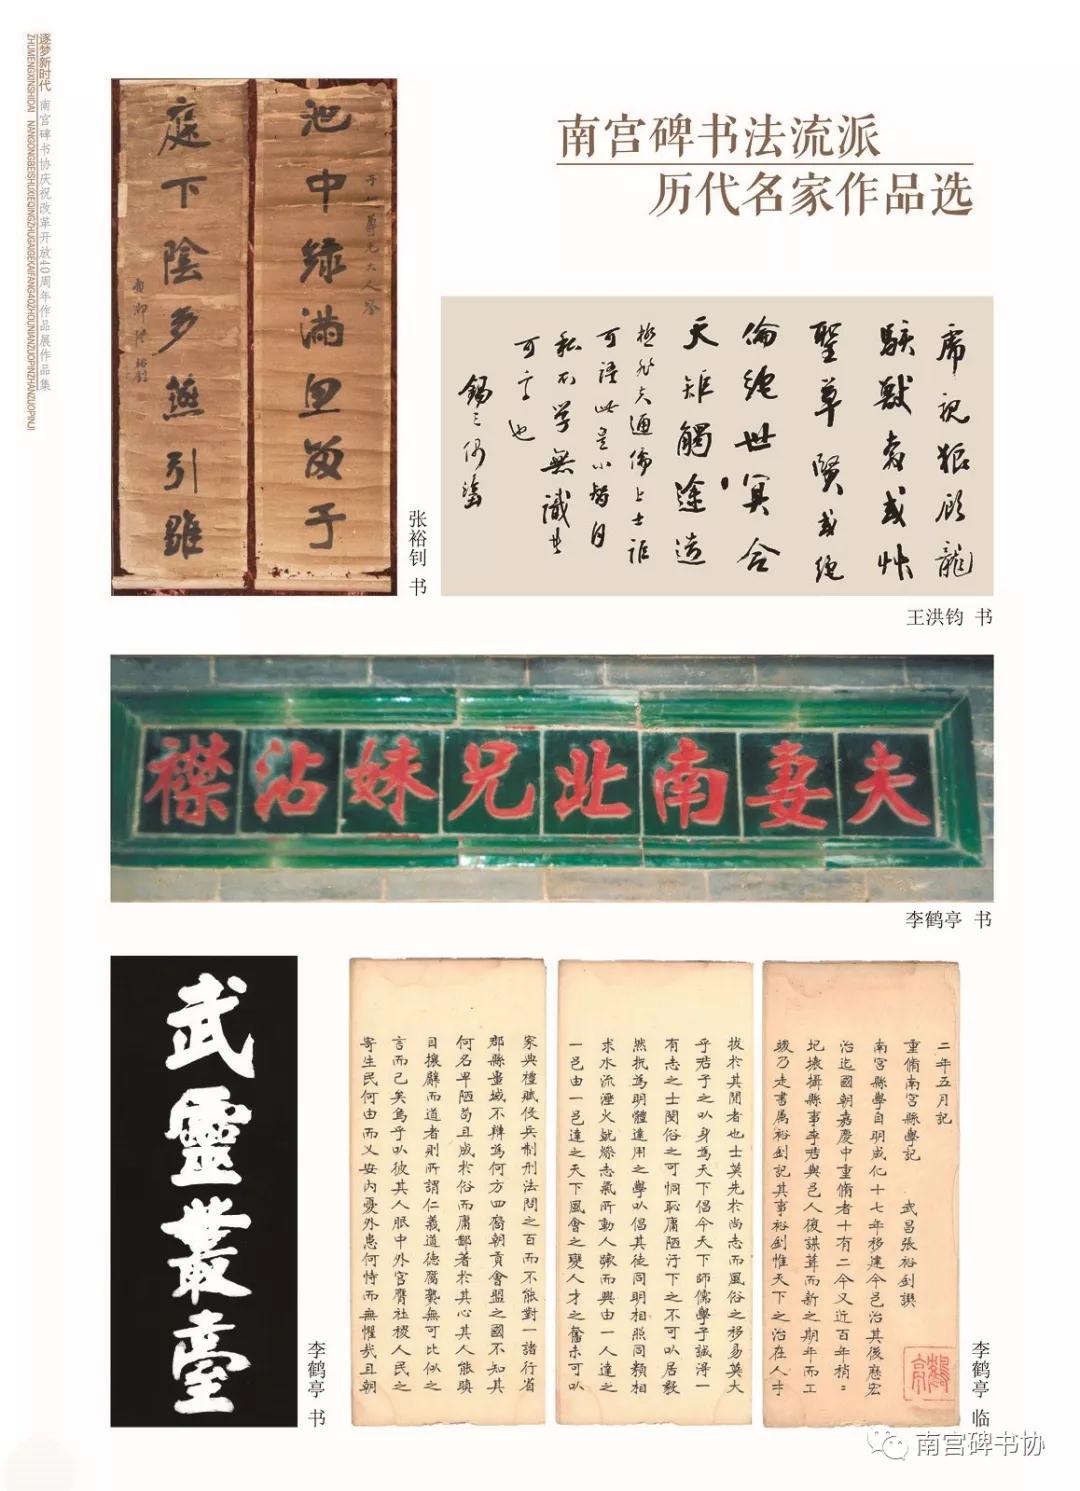 逐梦新时代 南宫碑书协庆祝改革开放40周年作品展作品集
ZHUMENGXINSHIDAI NANGONGBEISHUXIEQINGZHUGAIGEKAIFANG40ZHOUNIANZUOPINZHANZUOPINJI
南宫碑书法流派
历代名家作品选
池中綠滿魚留子
庭下陰多燕引雛
张裕钊 书
虎視狼顧龍
駭獸奔或艸
聖草賢或絕
倫絕世冥合
天矩觸塗造
極然大通儒上士詎
可語此是小智自
私不学無識者
可言也
王洪钧 书
夫妻南北兄妹沾襟
李鹤亭 书
武靈叢臺
李鹤亭 书
二年五月記
重脩南宮縣學記 武昌張裕釗譔
南宮縣學自明成化十七年移建今邑治其後歷宏
治迄國朝嘉慶中重脩者十有二今又近百年稍〻
圮壞攝縣事李君與邑人復謀葺而新之期年而工
竣乃走書属裕釗記其事裕釗惟天下之治在人才
拔於其間者也士莫先於尚志而風俗之移易莫大
乎君子之以身為天下倡今天下師儒學子誠得一
有志之士閔俗之可恫恥庸陋汙下之不可以居毅
然抗為明體達用之學以倡其徒同明相照同類相
求水流溼火就燥志氣所動人蹶而興由一人達之
一邑由一邑達之天下風會之變人才之奮未可以
家典禮賦役兵制刑法問之百而不能對一諸行省
郡縣畺域不辨為何方四裔朝貢會盟之國不知其
何名卑陋苟且成於俗而庸鄙著於其心其人能瞋
目攘臂而道者則所謂仁義道德腐熟無可比似之
言而已矣烏乎以彼其人服中外官膺社稷人民之
寄生民何由而乂安內憂外患何恃而無懼哉且朝
鶴亭
李鹤亭 临
南宫碑书协